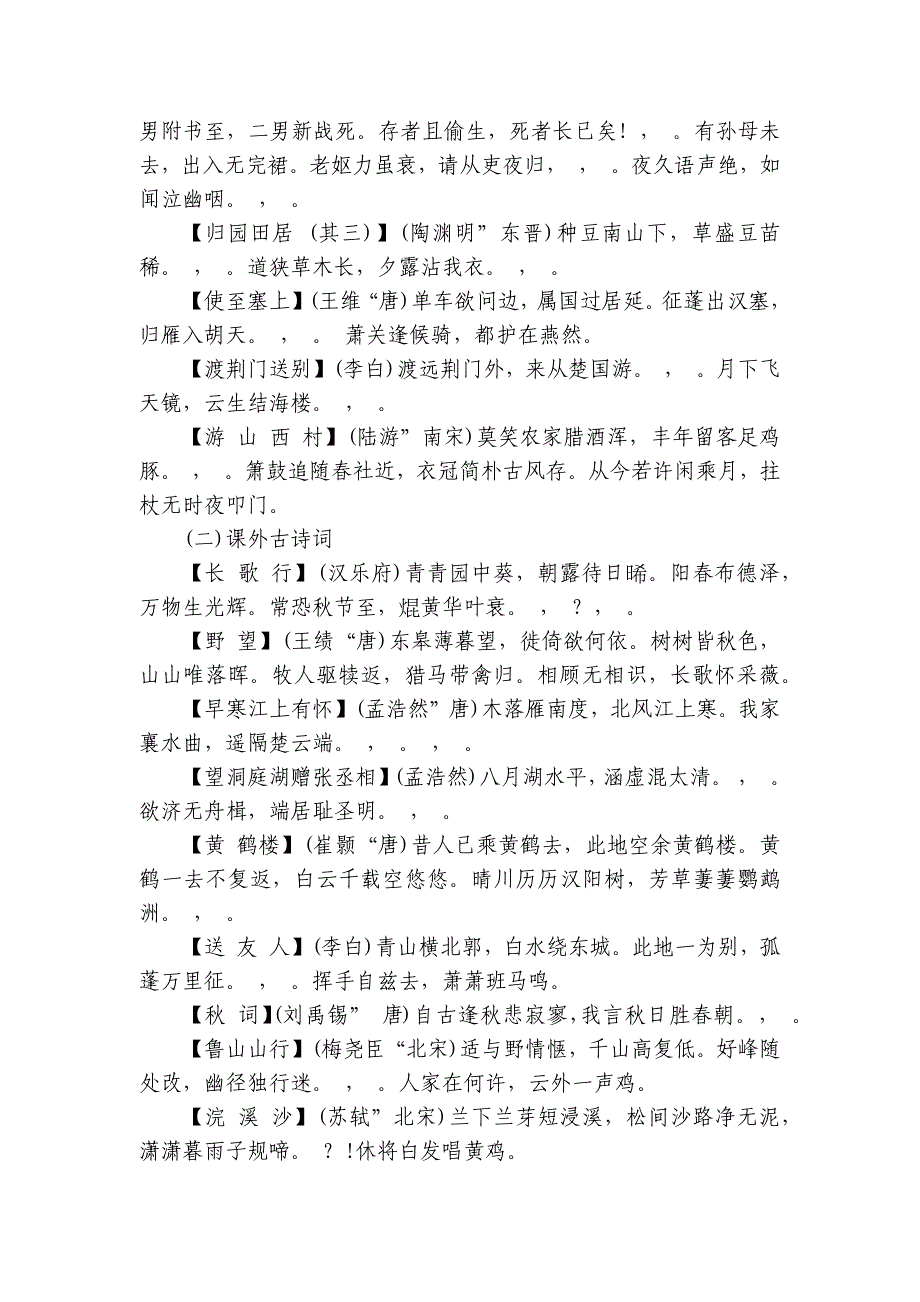 男附书至，二男新战死。存者且偷生，死者长已矣！， 。有孙母未
去，出入无完裙。老妪力虽衰，请从吏夜归， ， 。夜久语声绝，如
闻泣幽咽。 ， 。
【归园田居 (其三)】(陶渊明”东晋)种豆南山下，草盛豆苗
稀。 ， 。道狭草木长，夕露沾我衣。 ， 。
【使至塞上】(王维“唐)单车欲问边，属国过居延。征蓬出汉塞，
归雁入胡天。 ， 。 萧关逢候骑，都护在燕然。
【渡荆门送别】(李白)渡远荆门外，来从楚国游。 ， 。月下飞
天镜，云生结海楼。 ， 。
【游 山 西 村】(陆游”南宋)莫笑农家腊酒浑，丰年留客足鸡
豚。 ， 。箫鼓追随春社近，衣冠简朴古风存。从今若许闲乘月，拄
杖无时夜叩门。
(二)课外古诗词
【长 歌 行】(汉乐府)青青园中葵，朝露待日晞。阳春布德泽，
万物生光辉。常恐秋节至，焜黄华叶衰。 ， ？， 。
【野 望】(王绩“唐)东皋薄暮望，徙倚欲何依。树树皆秋色，
山山唯落晖。牧人驱犊返，猎马带禽归。相顾无相识，长歌怀采薇。
【早寒江上有怀】(孟浩然”唐)木落雁南度，北风江上寒。我家
襄水曲，遥隔楚云端。 ， 。 ， 。
【望洞庭湖赠张丞相】(孟浩然)八月湖水平，涵虚混太清。 ， 。
欲济无舟楫，端居耻圣明。 ， 。
【黄 鹤楼】(崔颢“唐)昔人已乘黄鹤去，此地空余黄鹤楼。黄
鹤一去不复返，白云千载空悠悠。晴川历历汉阳树，芳草萋萋鹦鹉
洲。 ， 。
【送 友 人】(李白)青山横北郭，白水绕东城。此地一为别，孤
蓬万里征。 ， 。挥手自兹去，萧萧班马鸣。
【秋 词】(刘禹锡” 唐)自古逢秋悲寂寥，我言秋日胜春朝。 ， 。
【鲁山山行】(梅尧臣“北宋)适与野情惬，千山高复低。好峰随
处改，幽径独行迷。 ， 。人家在何许，云外一声鸡。
【浣 溪 沙】(苏轼”北宋)兰下兰芽短浸溪，松间沙路净无泥，
潇潇暮雨子规啼。 ？！休将白发唱黄鸡。